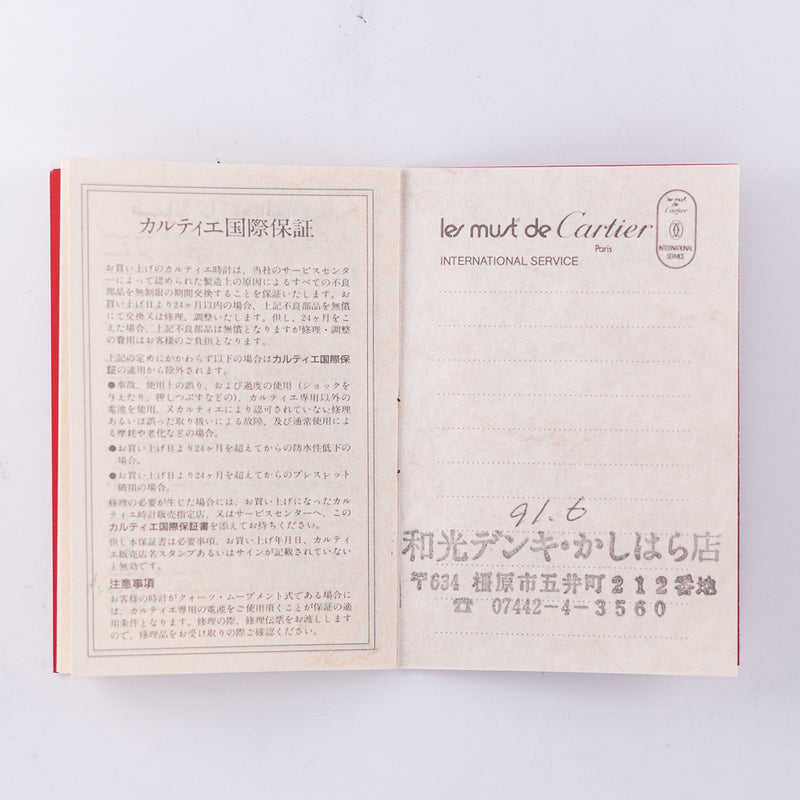 カルティエ国際保証
お買い上げのカルティエ時計は、当社のサービスセンタ
ーによって認められた製造上の原因によるすべての不良
部品を無制限の期間交換することを保証いたします。お
買い上げ日より24ヶ月以内の場合、上記不良部品を無償
にて交換又は修理、調整いたします。但し、24ヶ月をこ
えた場合、上記不良部品は無償となりますが修理・調整
の費用はお客様のご負担となります。
上記の定めにかかわらず以下の場合はカルティエ国際保
証の適用から除外されます。
●事故、使用上の誤り、および過度の使用（ショックを
与えたり、押しつぶすなどの）、カルティエ専用以外の
電池を使用、又カルティエにより認可されていない修理
あるいは誤った取り扱いによる故障、及び通常使用によ
る摩耗や老化などの場合。
●お買い上げ日より24ヶ月を超えてからの防水性低下の
場合。
●お買い上げ日より24ヶ月を超えてからのブレスレット
破損の場合。
修理の必要が生じた場合には、お買い上げになったカル
ティエ時計販売指定店、又はサービスセンターへ、この
カルティエ国際保証書を添えてお持ちください。
但し本保証書は必要事項、お買い上げ年月日、カルティ
エ販売店名スタンプあるいはサインが記載されていない
と無効です。
注意事項
お客様の時計がクォーツ・ムーブメント式である場合に
は、カルティエ専用の電池をご使用頂くことが保証の適
用条件となります。修理の際、修理伝票をお渡ししますの
で、修理品をお受け取りの際ご確認ください。
les must de Cartier
Paris
INTERNATIONAL SERVICE
les must
de
Cartier
INTERNATIONAL
SERVICE
91.6
和光デンキ・かしはら店
〒634 橿原市五井町212番地
☎ 07442-4-3560